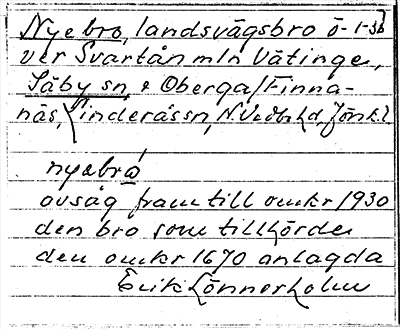 Nyebro, landsvägsbro ö-
ver Svartån mln Vätinge,
Säby sn, & Oberga/Finna-
näs, Linderås sn, N. Vedbo hd, Jönk. l.
nyebro
avsåg fram till omkr 1930
den bro som tillhörde
den omkr 1670 anlagda
Erik Lönnerholm